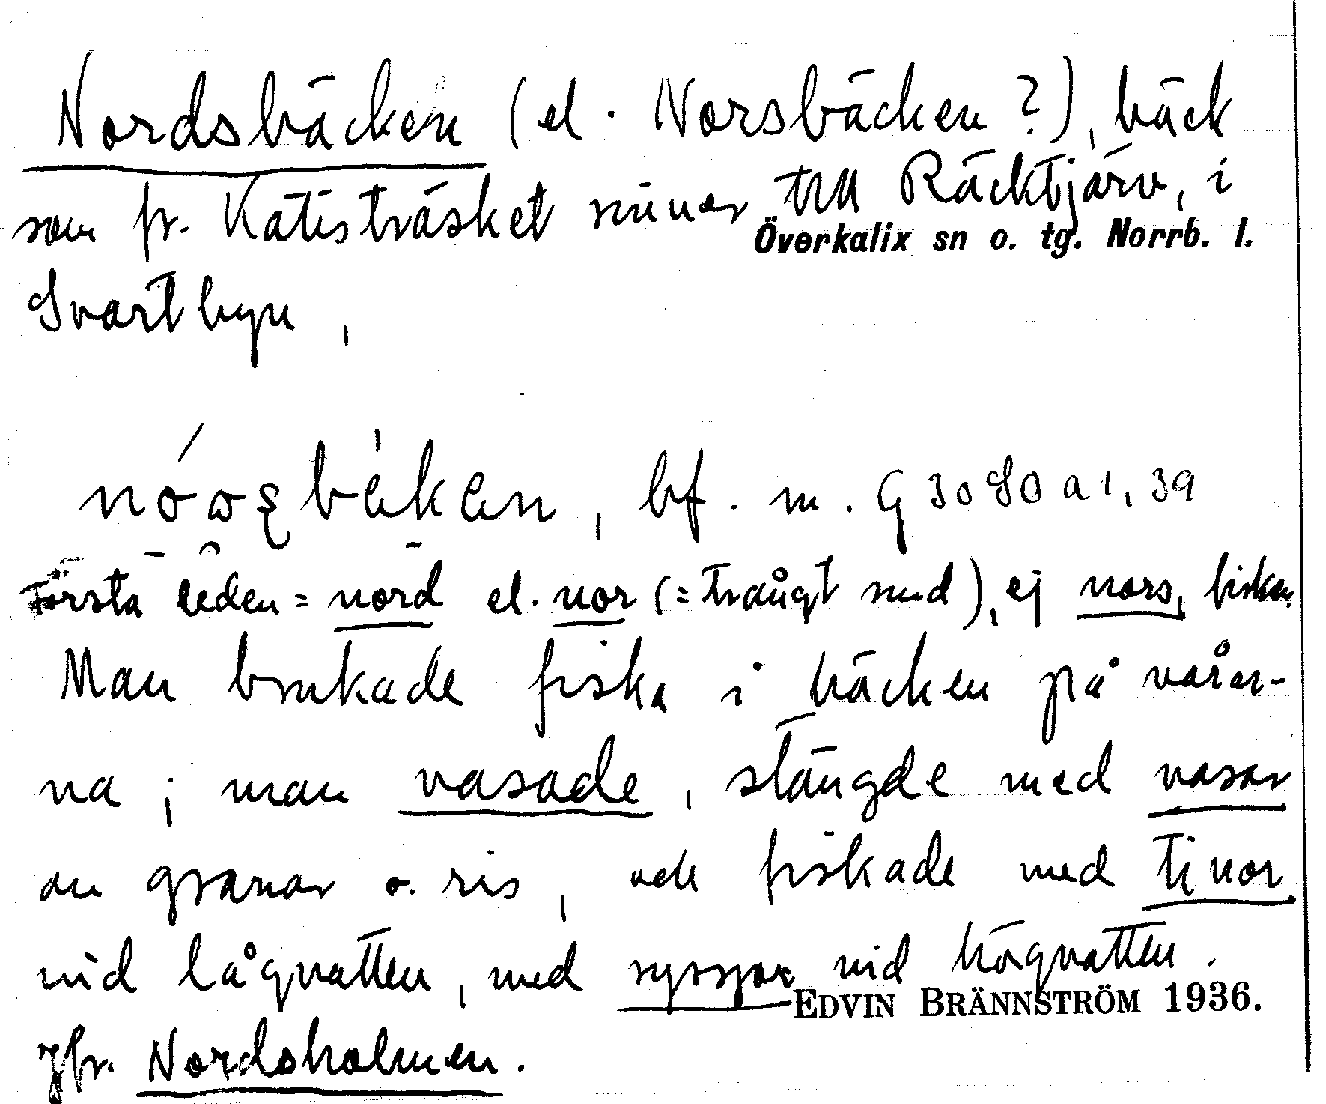 Nordsbäcken (el. Norsbäcken?), bäck
som fr. Katisträsket rinner till Räcktjärv, i
Överkalix sn o. tg. Norrb. l.
Svartbyn,
bf. m. G 3080 a 1, 39
Första leden = nord el. nor (= trångt sund), ej nors, fisken.
Man brukade fiska i bäcken på vårar-
na; man vasade, stängde med vasar
av granar o. ris, och fiskade med tinor
vid lågvatten, med ryssjor vid högvatten.
EDVIN BRÄNNSTRÖM 1936.
Jfr. Nordsholmen.